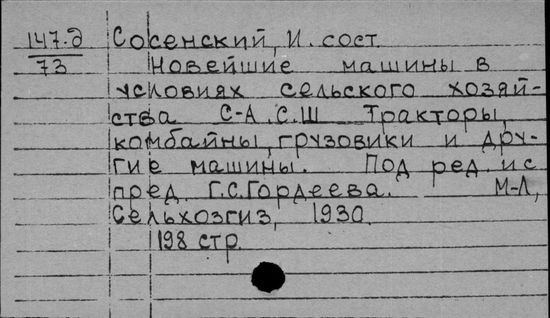 147.д Сосенский, И. сост.
73 Новейшие машины в
условиях сельского хозяй-
ства С-А.С.Ш Тракторы,
комбайны, грузовики и дру-
гие машины. Под ред. и с
пред. Г.С. Гордеева. М-Л,
Сельхозгиз, 1930.
198 стр.